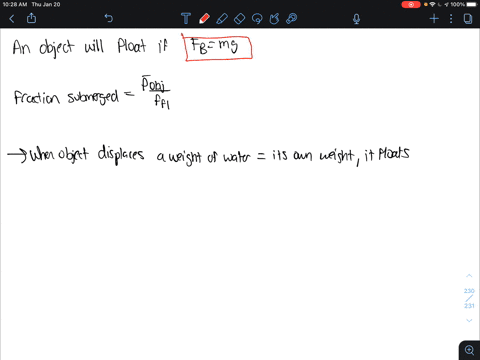 10:28 AM Thu Jan 20
100%
An object will float if F_B = mg
fraction submerged = ρ̄obj / ρfl
→ When object displaces a weight of water = its own weight, it floats
230
231